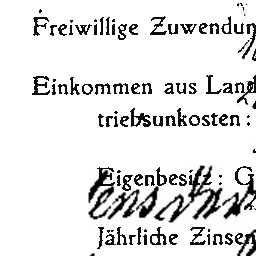 Freiwillige Zuwendun
Einkommen aus Land
triebsunkosten:
Eigenbesitz: G
Jährliche Zinsen